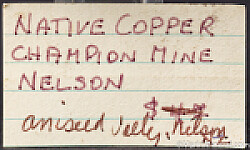 NATIVE COPPER
CHAMPION MINE
NELSON
aniseed Velley, Nelson
NZ